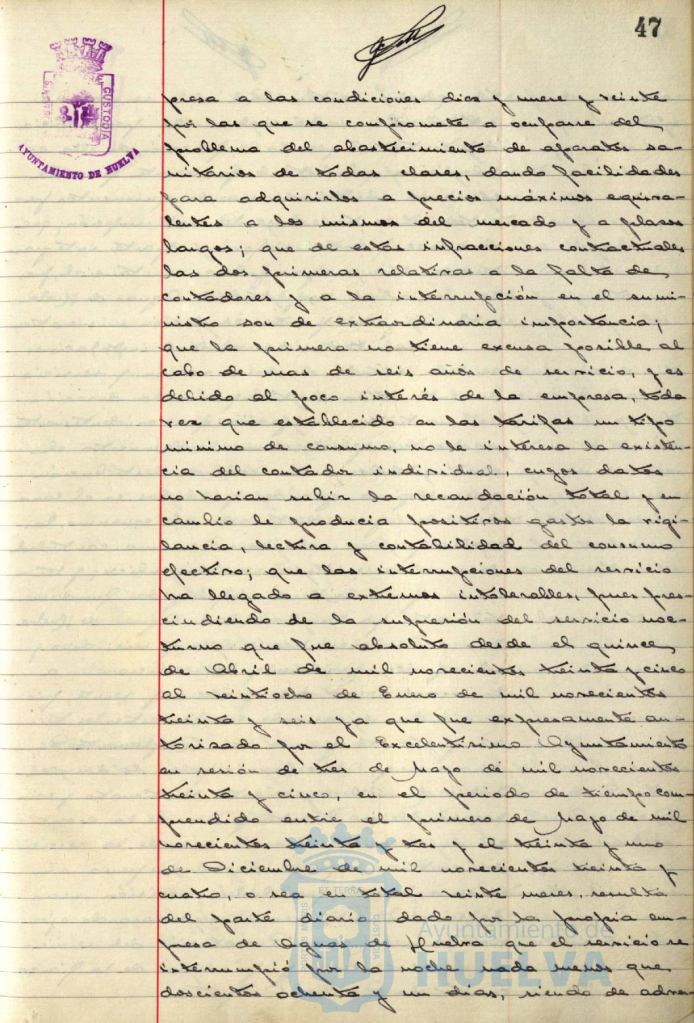 47
CUSTODIA
AYUNTAMIENTO DE HUELVA
presa a las condiciones diez y nueve y veinte
por las que se compromete a ocuparse del
problema del abastecimiento de aparatos sa-
nitarios de todas clases, dando facilidades
para adquirirlos a precios máximos equiva-
lentes a los mismos del mercado y a plazos
largos; que de estas infracciones contractuales
las dos primeras relativas a la falta de
contadores y a la interrupción en el sumi-
nistro son de extraordinaria importancia;
que la primera no tiene excusa posible al
cabo de mas de seis años de servicio, y es
debido al poco interés de la empresa, toda
vez que establecido en las tarifas un tipo
minimo de consumo, no le interesa la existen-
cia del contador individual, cuyos datos
no harian subir la recaudación total y en
cambio le producia positivos gastos la vigi-
lancia, lectura y contabilidad del consumo
efectivo; que las interrupciones del servicio
ha llegado a extremos intolerables, pues pres-
cindiendo de la supresión del servicio noc-
turno que fue absoluto desde el quince
de Abril de mil novecientos treinta y cinco
al veintiocho de Enero de mil novecientos
treinta y seis ya que fue expresamente au-
torizado por el Excelentisimo Ayuntamiento
en sesión de tres de Mayo de mil novecientos
treinta y cinco, en el periodo de tiempo com-
prendido entre el primero de Mayo de mil
novecientos treinta y tres y el treinta y uno
de Diciembre de mil novecientos treinta y
cuatro, o sea en total veinte meses, resulta
del parte diario dado por la propia em-
presa de Aguas de Huelva que el servicio se
interrumpió por la noche nada menos que
doscientos ochenta y un dias, siendo de adver-
Ayuntamiento de
HUELVA